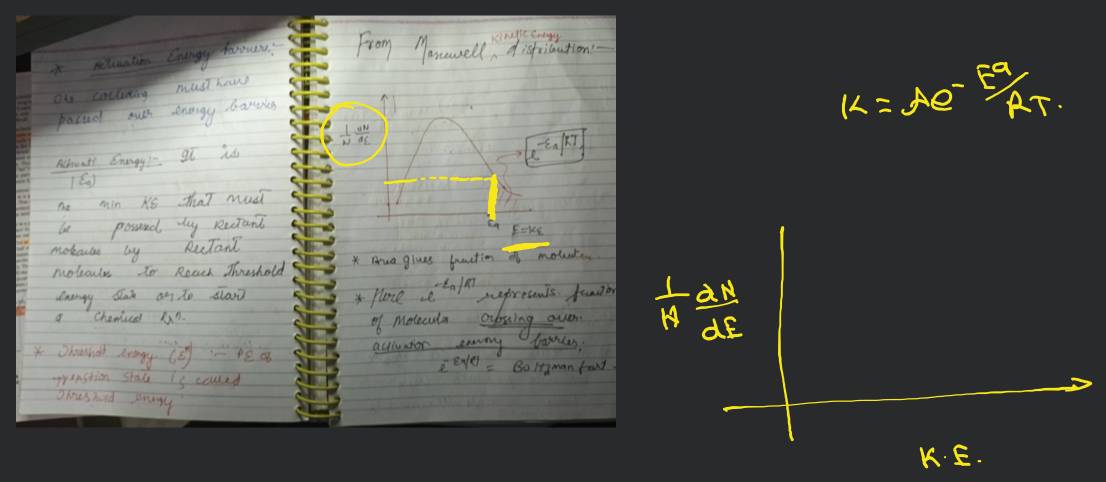 * Activation Energy barrier:-
are colliding must have
passed over energy barrier
Activatn Energy:- It is
(Ea)
the min KE that must
be possesed by Rectant
molecules by Rectant
molecules to Reach threshold
energy state or to start
a Chemical Rxn.
* Threshold energy (E*) :- PE of
state is called
Threshold energy
From Maxewell ^ Kinetic Energy distribution:-
1/N dN/dE
e^-Ea/RT
Ea
E=KE
* Area gives fraction of molecules
* Here e^-Ea/RT represents fraction
of Molecule crossing over
activation energy barrier,
e^-Ea/RT = Boltzman fact.
K = Ae^-Ea/RT.
1/N dN/dE
K.E.